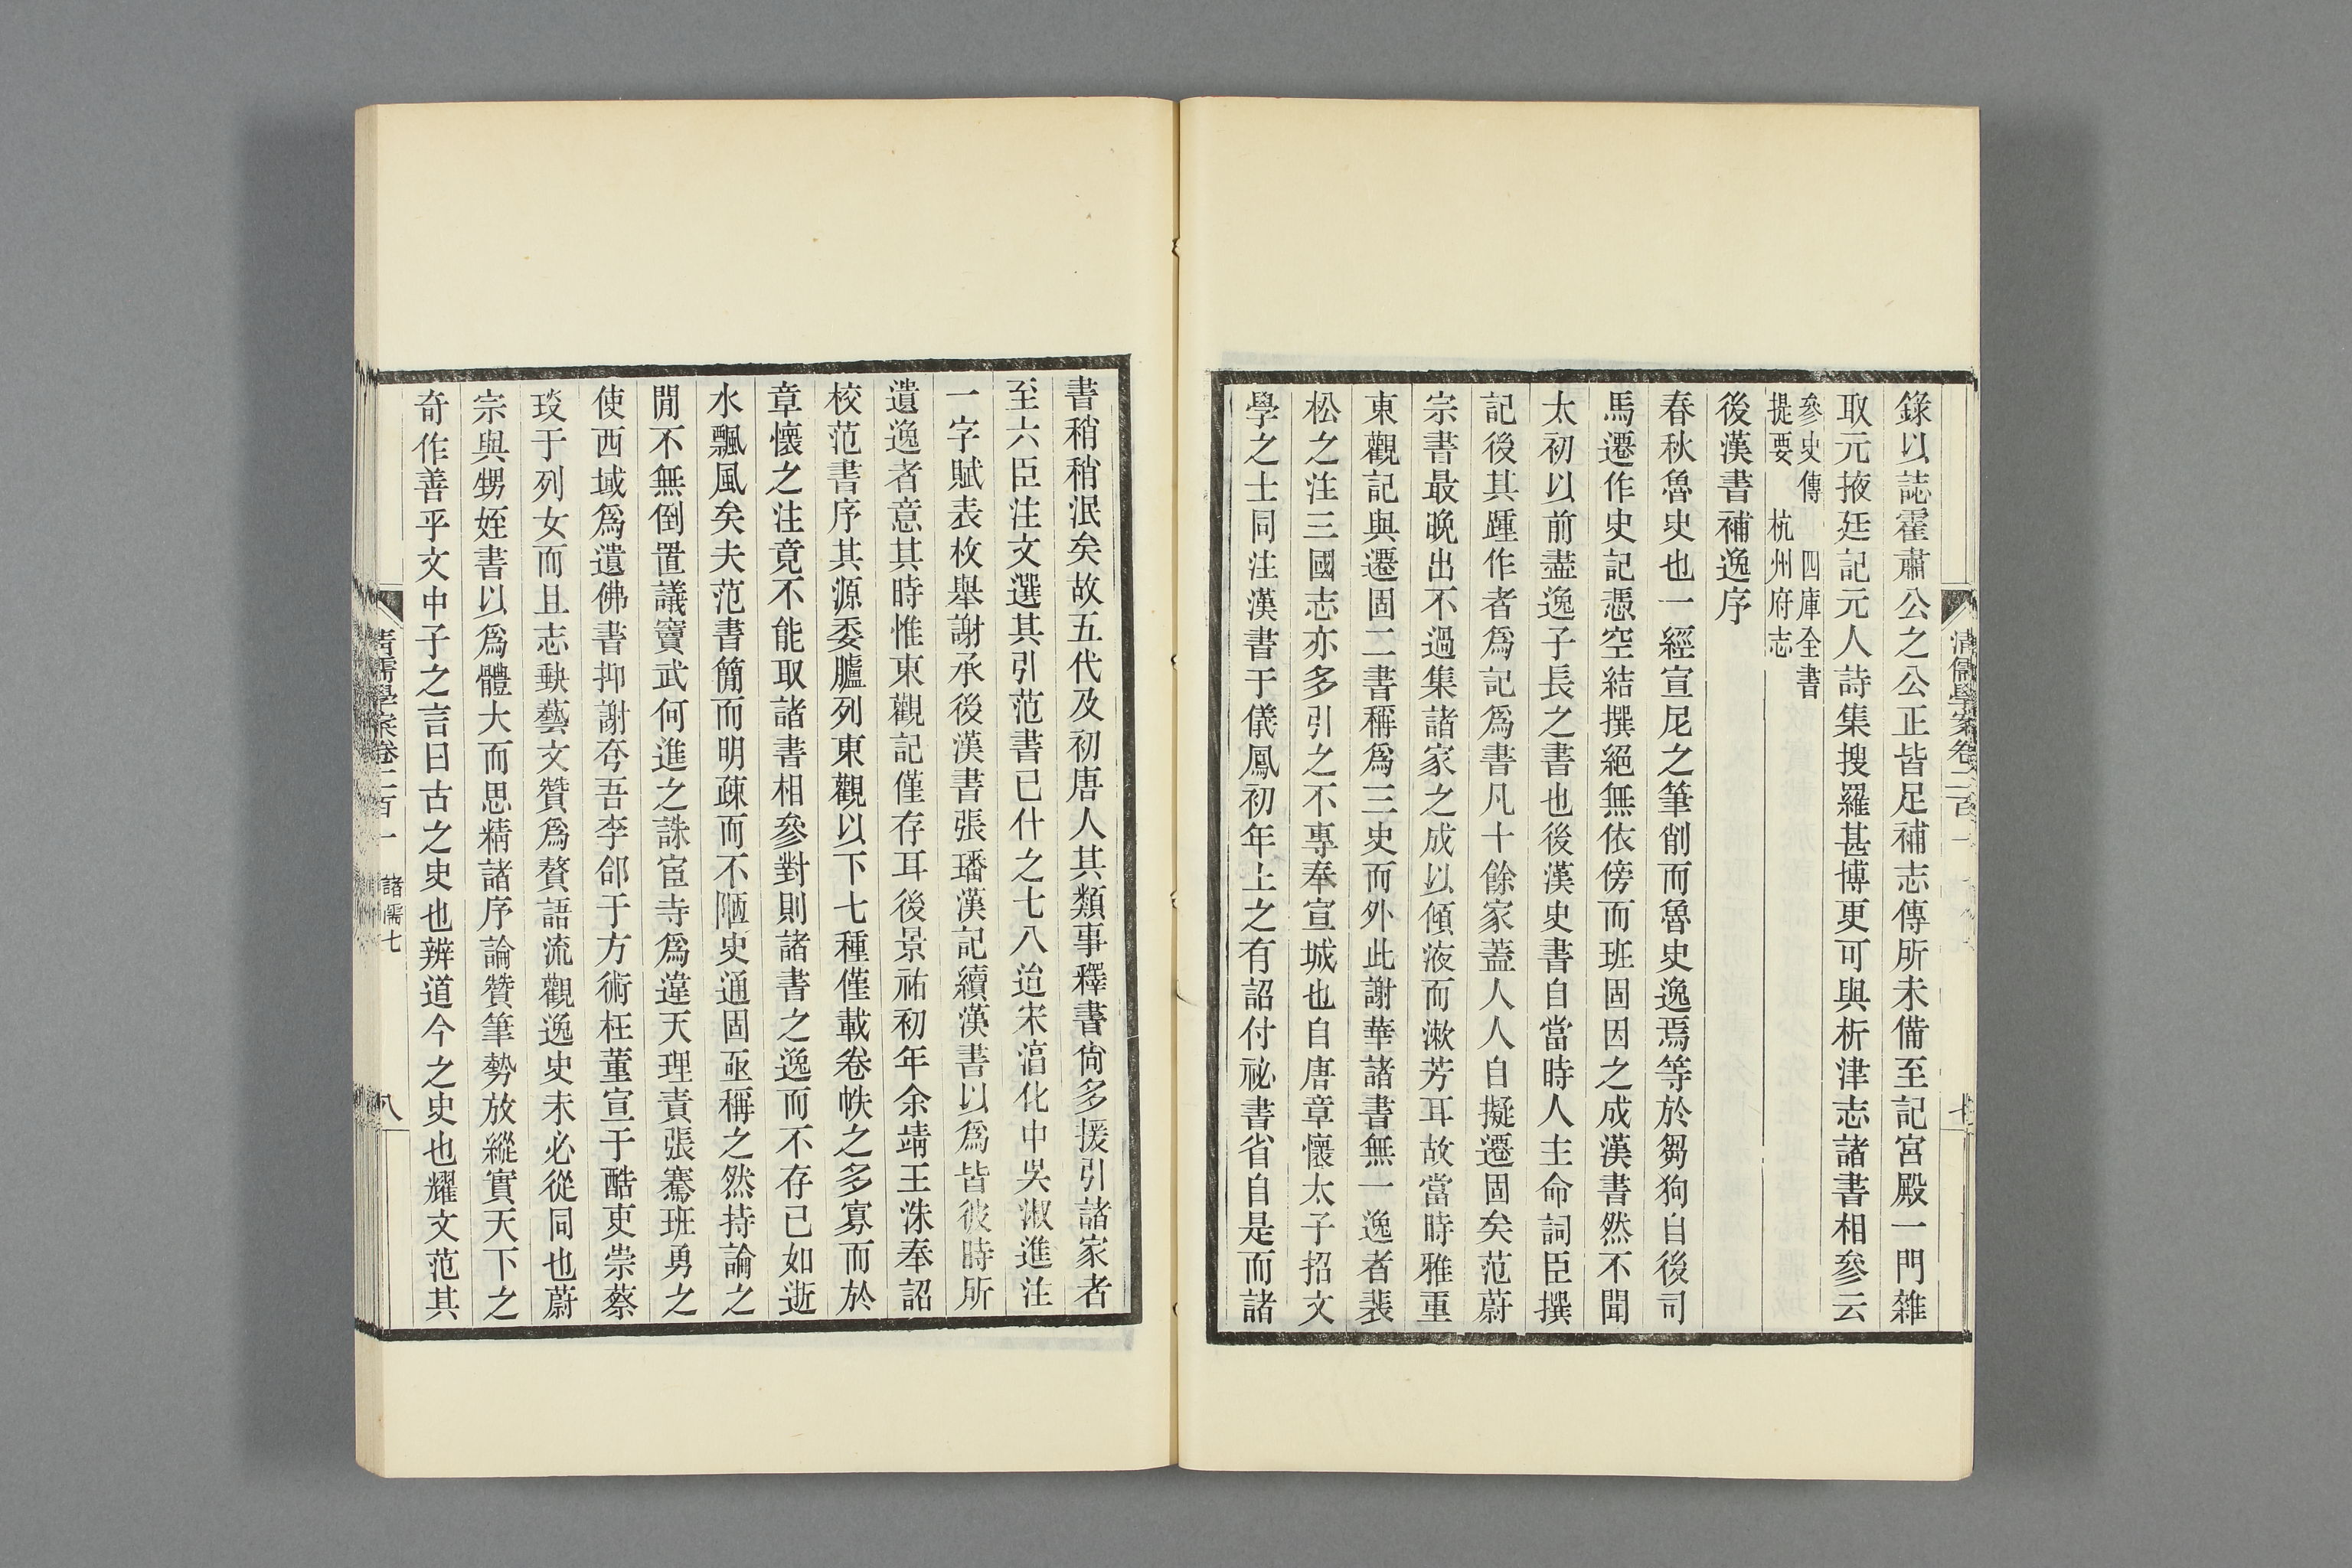 清儒學案卷二百一
七
錄以誌霍肅公之公正皆足補志傳所未備至記宮殿一門雜
取元掖廷記元人詩集搜羅甚博更可與析津志諸書相參云
參史傳　四庫全書
提要　杭州府志
後漢書補逸序
春秋魯史也一經宣尼之筆削而魯史逸焉等於芻狗自後司
馬遷作史記憑空結撰絕無依傍而班固因之成漢書然不聞
太初以前盡逸子長之書也後漢史書自當時人主命詞臣撰
記後其踵作者爲記爲書凡十餘家蓋人人自擬遷固矣范蔚
宗書最晚出不過集諸家之成以傾液而漱芳耳故當時雅重
東觀記與遷固二書稱爲三史而外此謝華諸書無一逸者裴
松之注三國志亦多引之不專奉宣城也自唐章懷太子招文
學之士同注漢書于儀鳳初年上之有詔付祕書省自是而諸
書稍稍泯矣故五代及初唐人其類事釋書書尙多援引諸家者
至六臣注文選其引范書已什之七八迨宋淳化中吳淑進注
一字賦表枚舉謝承後漢書張璠漢記續漢書以爲皆彼時所
遺逸者意其時惟東觀記僅存耳後景祐初年余靖王洙奉詔
校范書序其源委臚列東觀以下七種僅載卷帙之多寡而於
章懷之注竟不能取諸書相參對則諸書之逸而不存已如逝
水飄風矣夫范書簡而明疎而不陋史通固亟稱之然持論之
閒不無倒置議竇武何進之誅宦寺爲違天理責張騫班勇之
使西域爲遺佛書抑謝夸吾李郃于方術枉董宣于酷吏祟蔡
琰于列女而且志缺藝文贊爲贅語流觀逸史未必從同也蔚
宗與甥姪書以爲體大而思精諸序論贊筆勢放縱實天下之
奇作善乎文中子之言曰古之史也辨道今之史也耀文范其
清儒學案卷二百一　諸儒七
八